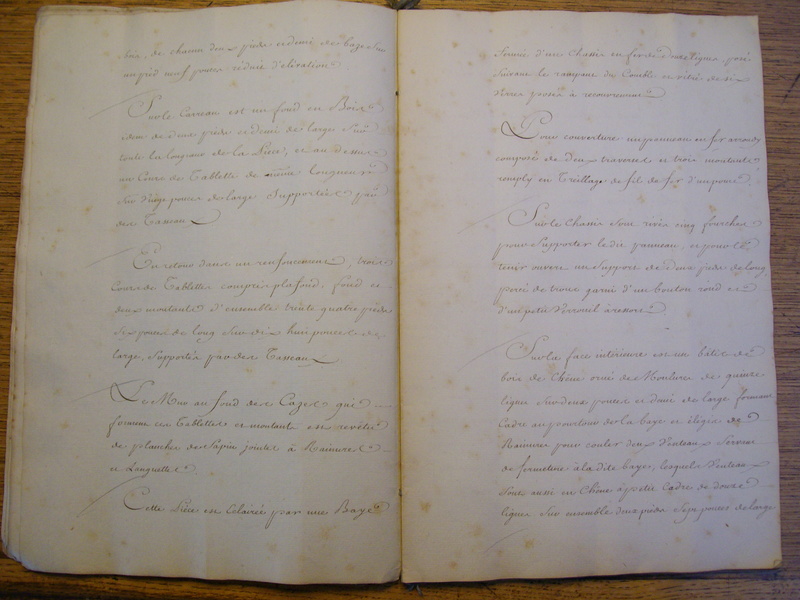 bois, de chacun deux pieds et demi de baze sur
un pied neuf pouces réduit d'elévation
Sur le Carreau est un fond en Bois
de deux pieds et demi de large sur
toute la longueur de la Pièce, et au dessus
un Cours de Tablette de même longueur
sur pouces de large Supportées par
des Tasseaux
En retour dans un renfoncement, trois
Cours de Tablettes compris plafond, fond et
deux montants d'ensemble trente quatre pieds
six pouces de long sur dix huit pouces de
large, Supportés par des Tasseaux
Le Mur au fond des Cazes que
forment ces Tablettes et montants est revêtu
de planches de Sapin jointes à Rainures
et Languettes
Cette Pièce est Eclairée par une Baye
fermée d'un Chassis en fer de douze lignes posé
suivant le rampant du Comble et vitré de six
verres posés à recouvrement
Pour couverture un panneau en fer
composé de deux traverses et trois montants
remply en Treillage de fil de fer d'un pouce
Sur le Chassis sont rivés cinq fourches
pour Supporter le dit panneau, et pour le
tenir ouvert un Support de deux pieds de long
percé de trous garni d'un bouton rond et
d'un petit à ressort
Sur la face intérieure est un bâtis de
bois de Chêne orné de Moulures de quinze
lignes sur deux pouces et demi de large formant
Cadre au pourtour de la baye et élégis de
Rainures pour couler deux Vanteaux Servant
de fermeture à la dite baye, lesquels Vanteaux
sont aussi en Chêne à petit Cadre de douze
lignes sur ensemble deux pieds Sept pouces de large